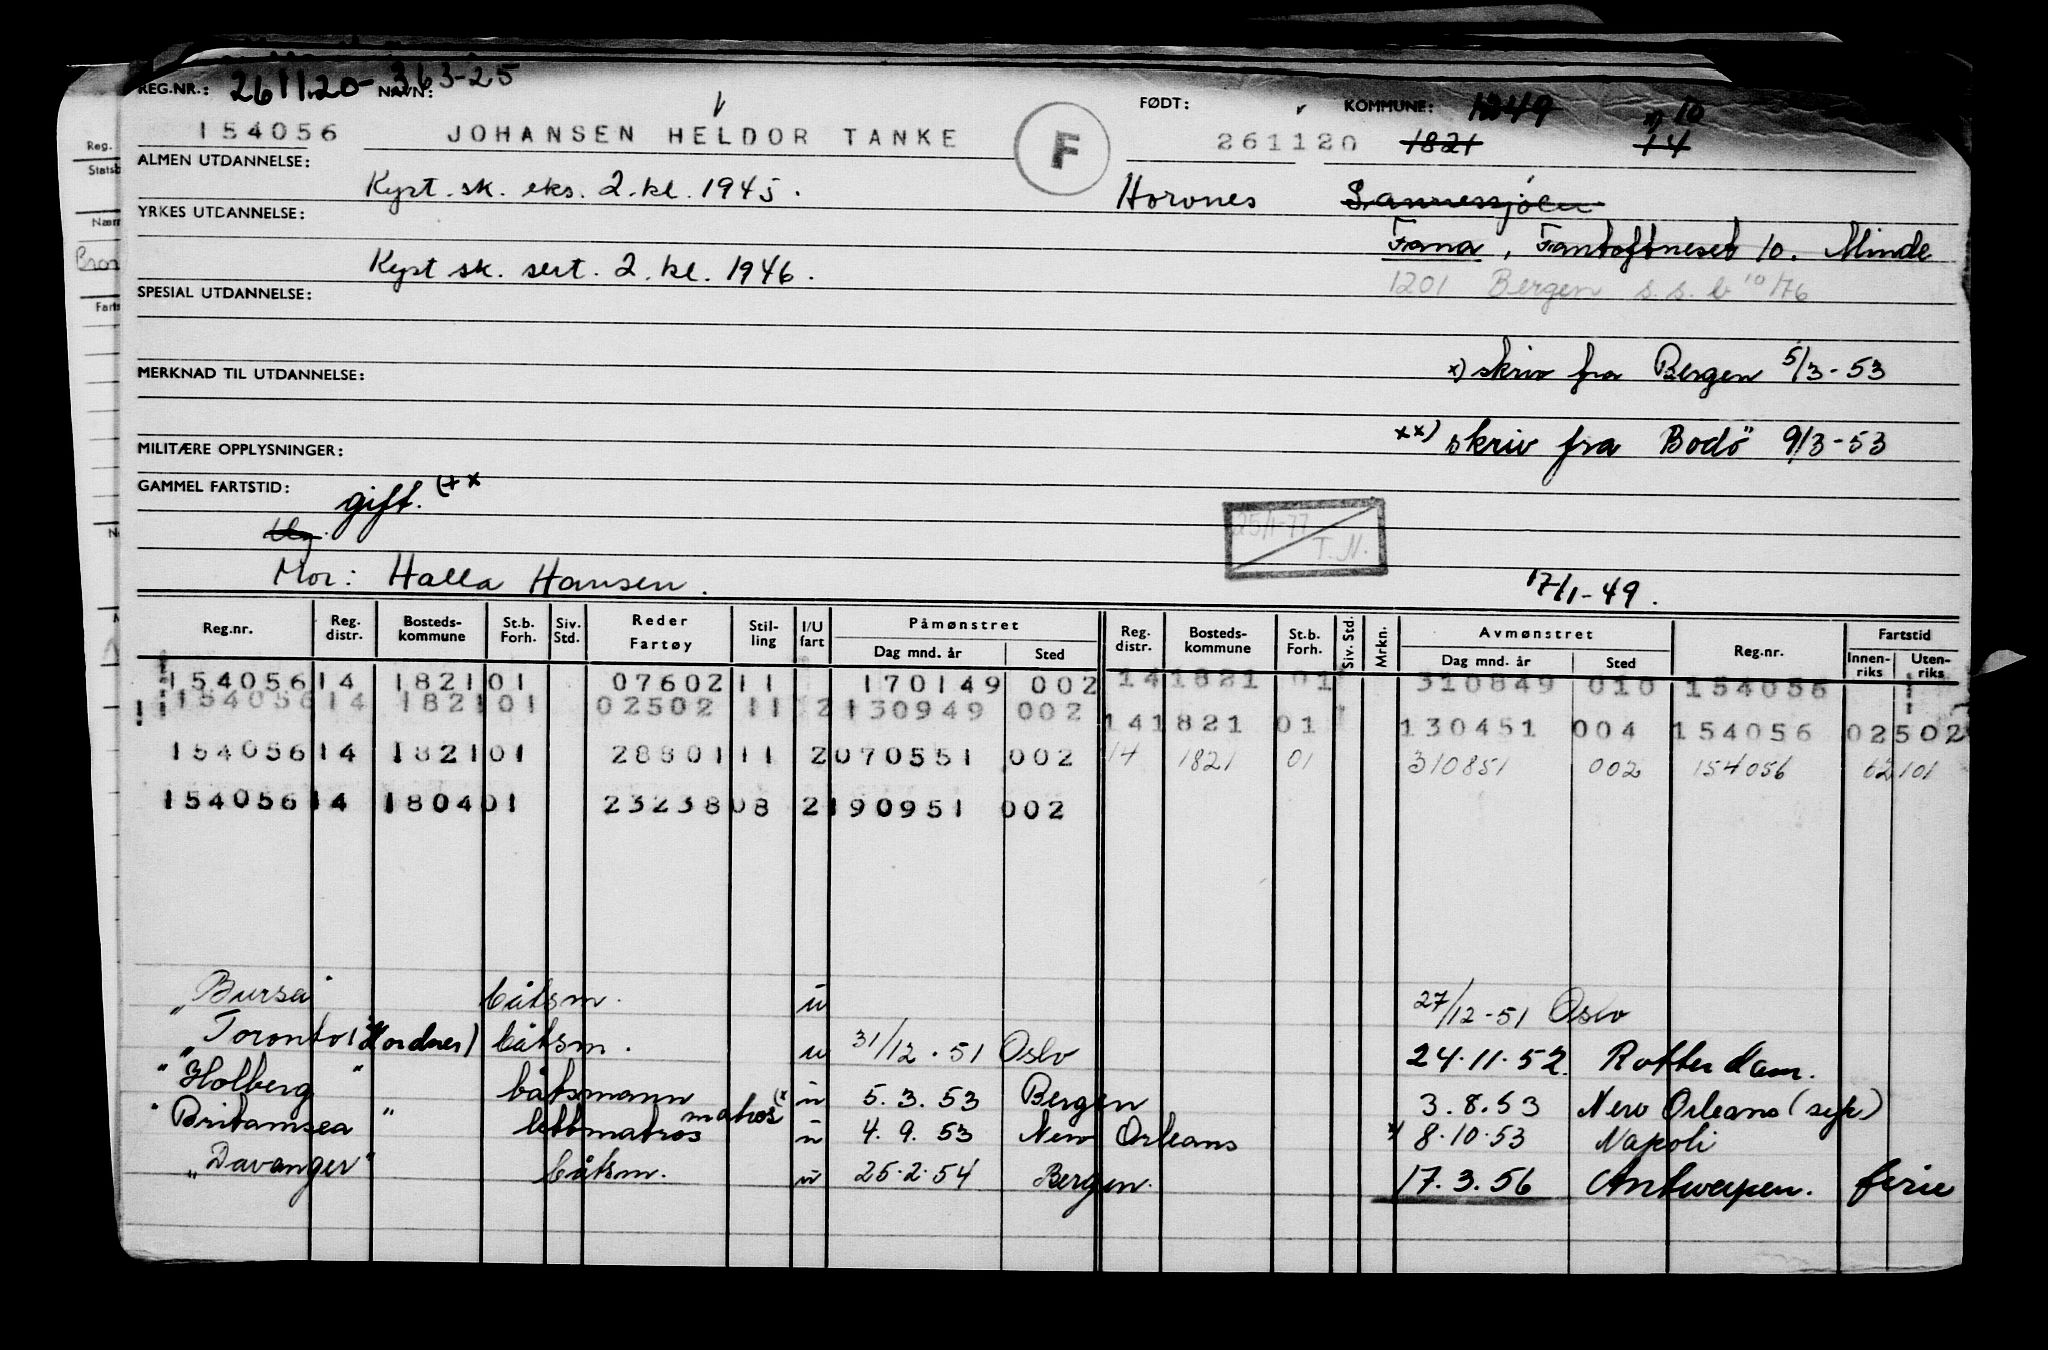 REG.NR.: 261120-363-25 NAVN: FØDT: KOMMUNE: 1249 x) 10
154056 JOHANSEN HELDOR TANKE F 261120 1821 14
ALMEN UTDANNELSE: Kyst. sk. eks. 2. kl. 1945. Horvnes Sannessjöen
YRKES UTDANNELSE: Fana, Fantoftneset 10. Minde
Kyst sk. sert. 2. kl. 1946. 1201 Bergen s.s. b 10/76
SPESIAL UTDANNELSE:
x) skriv fra Bergen 5/3-53
MERKNAD TIL UTDANNELSE:
xx) skriv fra Bodö 9/3-53
MILITÆRE OPPLYSNINGER:
GAMMEL FARTSTID: gift. (xx
25/1-77 T.N.
Mor: Halla Hansen. 17/1-49.
Reg.nr. Reg. distr. Bosteds-kommune St.b. Forh. Siv. Std. Reder Fartøy Stil-ling I/U fart Påmønstret Dag mnd. år Sted Reg. distr. Bosteds-kommune St.b. Forh. Siv. Std. Mrkn. Avmønstret Dag mnd. år Sted Reg.nr. Fartstid Innen-riks Uten-riks
154056 14 1821 01 07602 11 170149 002 14 1821 01 310849 010 154056
154056 14 1821 01 02502 11 2 130949 002 14 1821 01 130451 004 154056 02502
154056 14 1821 01 28801 11 2 070551 002 14 1821 01 310851 002 154056 02101
154056 14 1804 01 23238 08 2 190951 002
"Bursa" båtsm. u 27/12-51 Oslo
"Toronto (Hordnes) båtsm. u 31/12.51 Oslo 24.11.52. Rotterdam.
"Holberg" båtsmann u 5.3.53 Bergen 3.8.53 New Orleans (syk)
"Britamsea" lettmatros matros (x u 4.9.53 New Orleans x) 8.10.53 Napoli
"Davanger" båtsm. u 25.2.54 Bergen. 17.3.56 Antwerpen. ferie